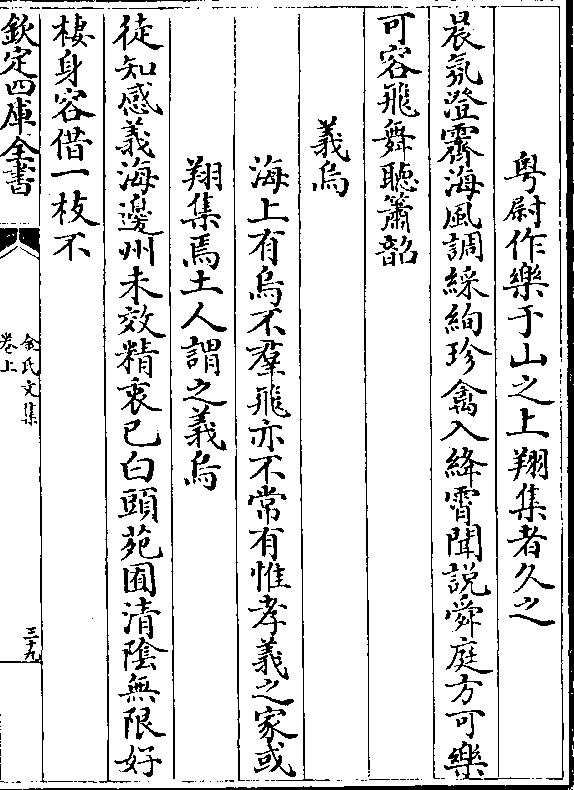 粤尉作樂于山之上翔集者久之
晨氛澄霽海風調綵絢珍禽入絳霄聞説舜庭方可樂
可容飛舞聽簫韶
義烏
海上有烏不羣飛亦不常有惟孝義之家或
翔集焉土人謂之義烏
徒知感義海邊州未效精衷已白頭苑囿清陰無限好
棲身容借一枝不
欽定四庫全書
金氏文集
卷上
三十九